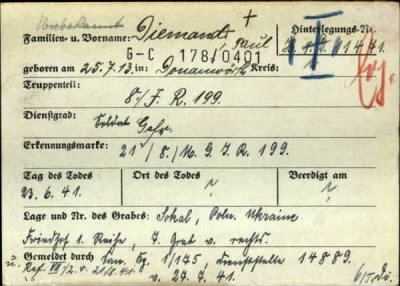 Unbekannt
Familien- u. Vorname: Diemandt, Paul +
Hinterlegungs-Nr.
G-C 178/0401
geboren am 25.7.13, in: Donauwörth Kreis:
Truppenteil:
8./J. R. 199.
Dienstgrad: Soldat Gefr.
Erkennungsmarke: 21 / 8./M. G. J. R. 199.
Tag des Todes Ort des Todes Beerdigt am
23.6.41. ? ?
Lage und Nr. des Grabes: Sokal, Poln. Ukraine
Friedhof 1. Reihe, 7. Grab v. rechts.
Gemeldet durch San. Kp. 1/175, Dienststelle 14889.
u. Ref. VII/2. v. 21/8.41. v. 27.7.41.